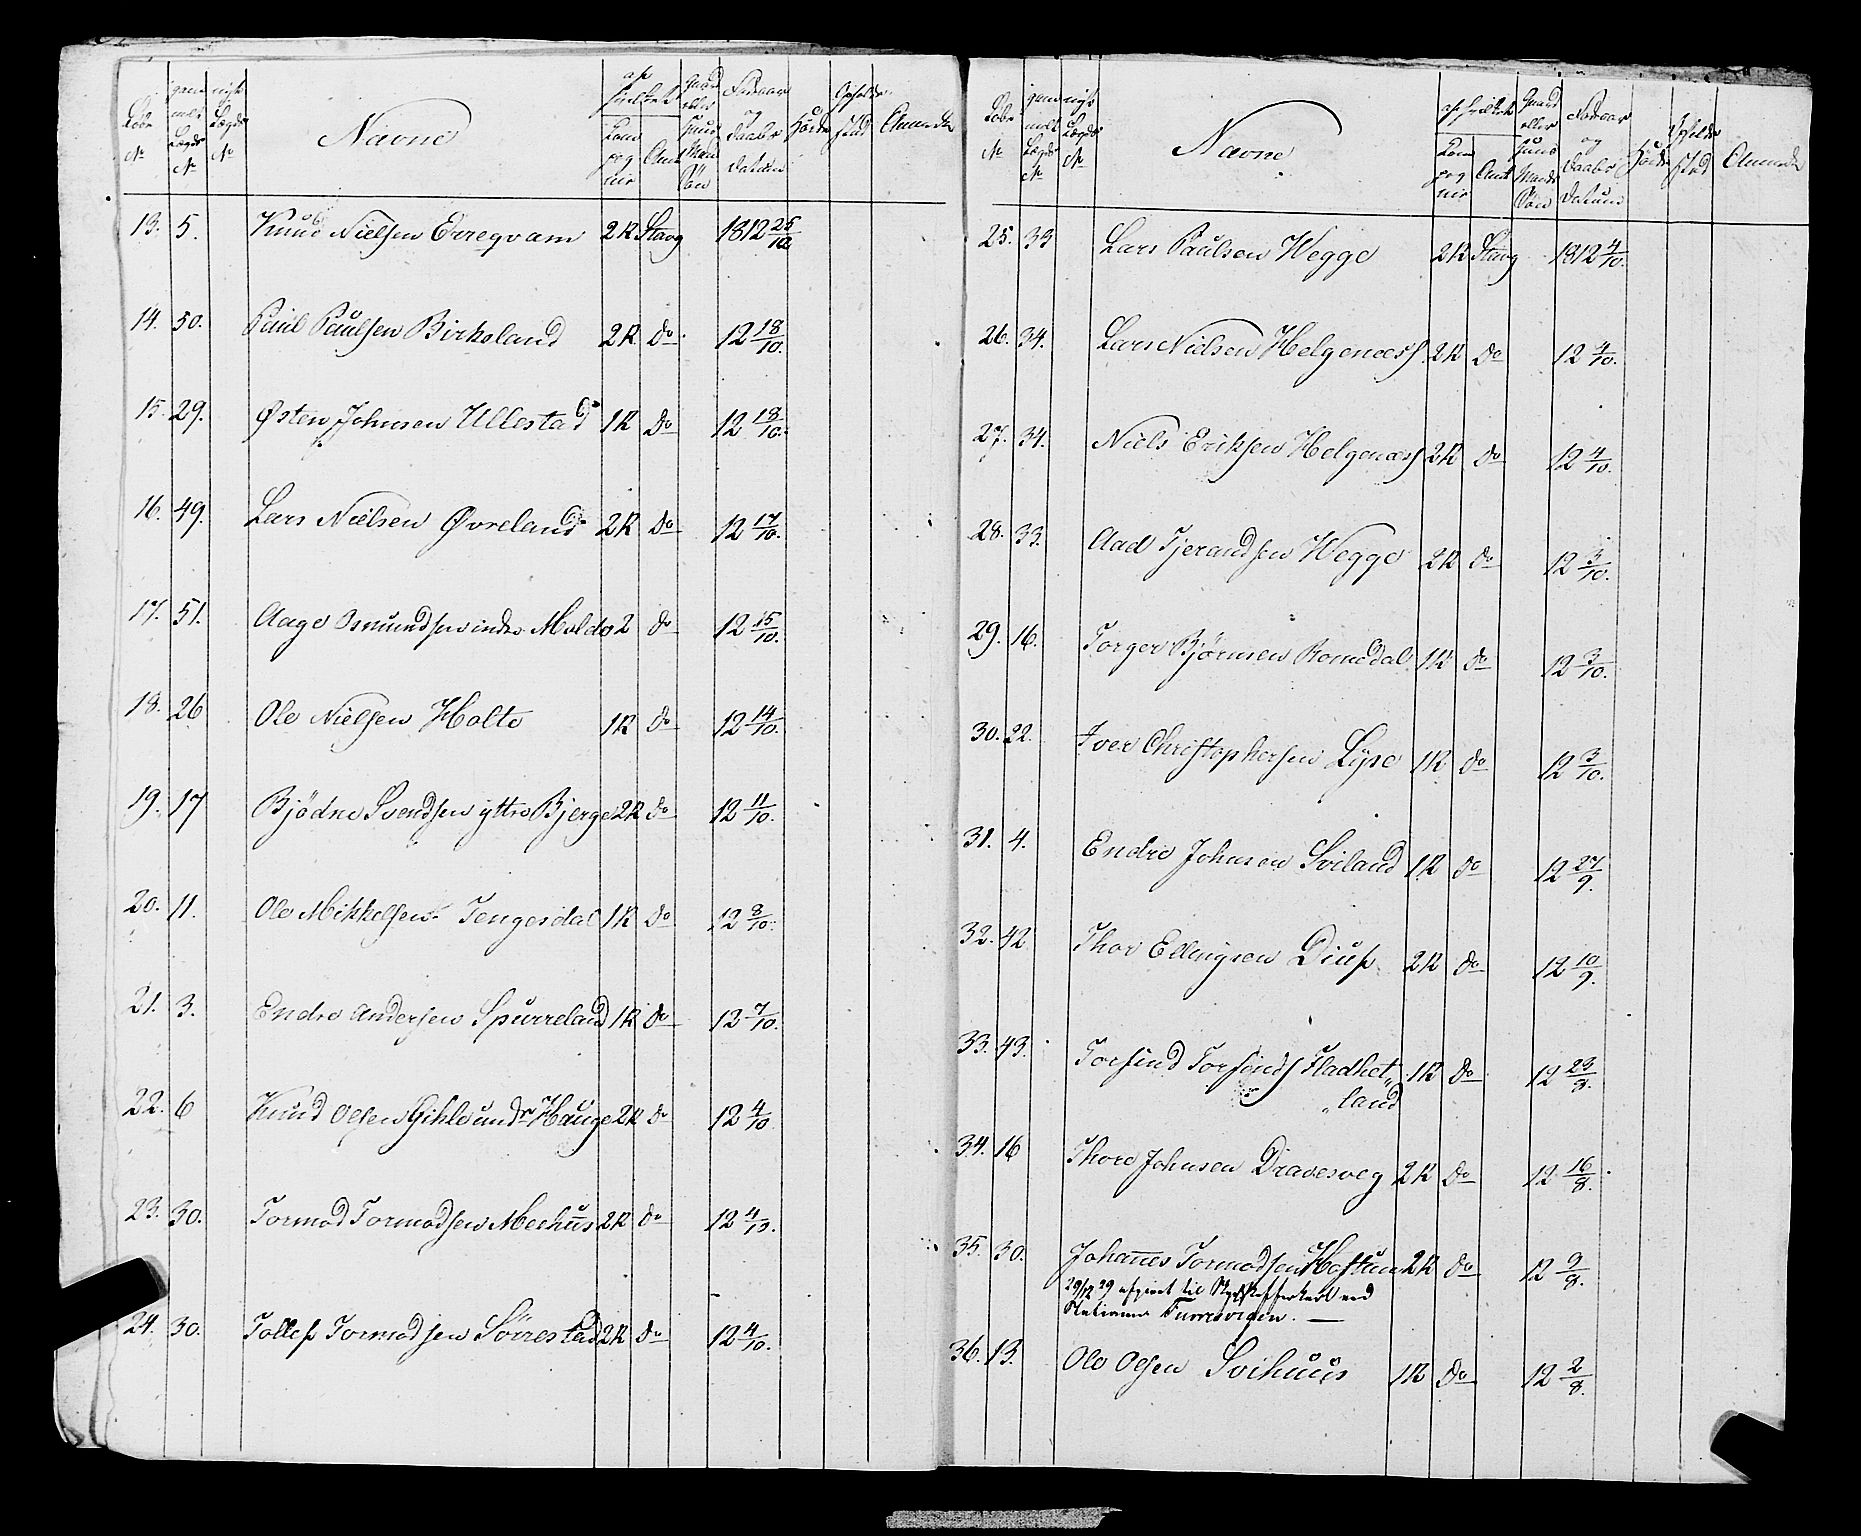 Løbe No gam melt Lægds No nyt Lægds No Navne af hvilket Kom pag nie Amt Gaard eller Huus Mands Søn Fødeaar og Daabs Datum Høide Opholds Sted Anmærk
13. 5. Knud Nielsen Erreqvam 2 K Stavg 1812 25/10
14. 50. Paul Paulsen Birkeland 2 K Do 12 18/10.
15. 29. Østen Johnsen Ullestad 1 K Do 12 18/10.
16. 49. Lars Nielsen Øvreland 2 K Do 12 17/10.
17. 51. Aage Osmundsen indre Molde 2 Do 12 15/10.
18. 26 Ole Nielsen Holte 1 K Do 12 14/10.
19. 17 Bjødne Svendsen yttre Bjerge 2 K Do 12 11/10.
20. 11. Ole Mikkelsen Tengesdal 1 K Do 12 8/10.
21. 3. Endre Andersen Spurreland 1 K Do 12 7/10.
22. 6 Knud Olsen Gihle und Hauge 2 K Do 12 4/10
23. 30. Tormod Tormodsen Meehuus 2 K Do 12 4/10.
24. 30. Tollef Tormodsen Sørrestad 2 K Do 12 4/10.
Løbe No gam melt Lægds No nyt Lægds No Navne af hvilket Kom pag nie Amt Gaard eller Huus Mands Søn Fødeaar og Daabs Datum Høide Opholds Sted Anmærk
25. 33 Lars Paulsen Wegge 2 K Stavg 1812 4/10.
26. 34. Lars Nielsen Helgenæss 2 K Do 12 4/10.
27. 34. Niels Eriksen Helgenæss 2 K Do 12 4/10.
28. 33. Aad Tjerandsen Wegge 2 K Do 12 3/10.
29. 16. Torger Bjørnsen Romedal 1 K Do 12 3/10.
30. 22. Iver Christophersen Lyse 1 K Do 12 3/10.
31. 4. Endre Johnsen Sviland 1 K Do 12 27/9.
32. 42 Thor Ellingsen Diup 2 K Do 12 10/9.
33. 43. Torsend Torsends Fladhet„ 1 K Do 12 23/8.
„land
34. 16 Thore Johnsen Dravesveg 2 K Do 12 16/8.
35. 30. Johannes Tormodsen Hostun 2 K Do 12 9/8.
29/12 29 afgivet til Skydskafferkarl ved
Stationen
36. 13. Ole Olsen Svihuus 1 K Do 12 2/8.